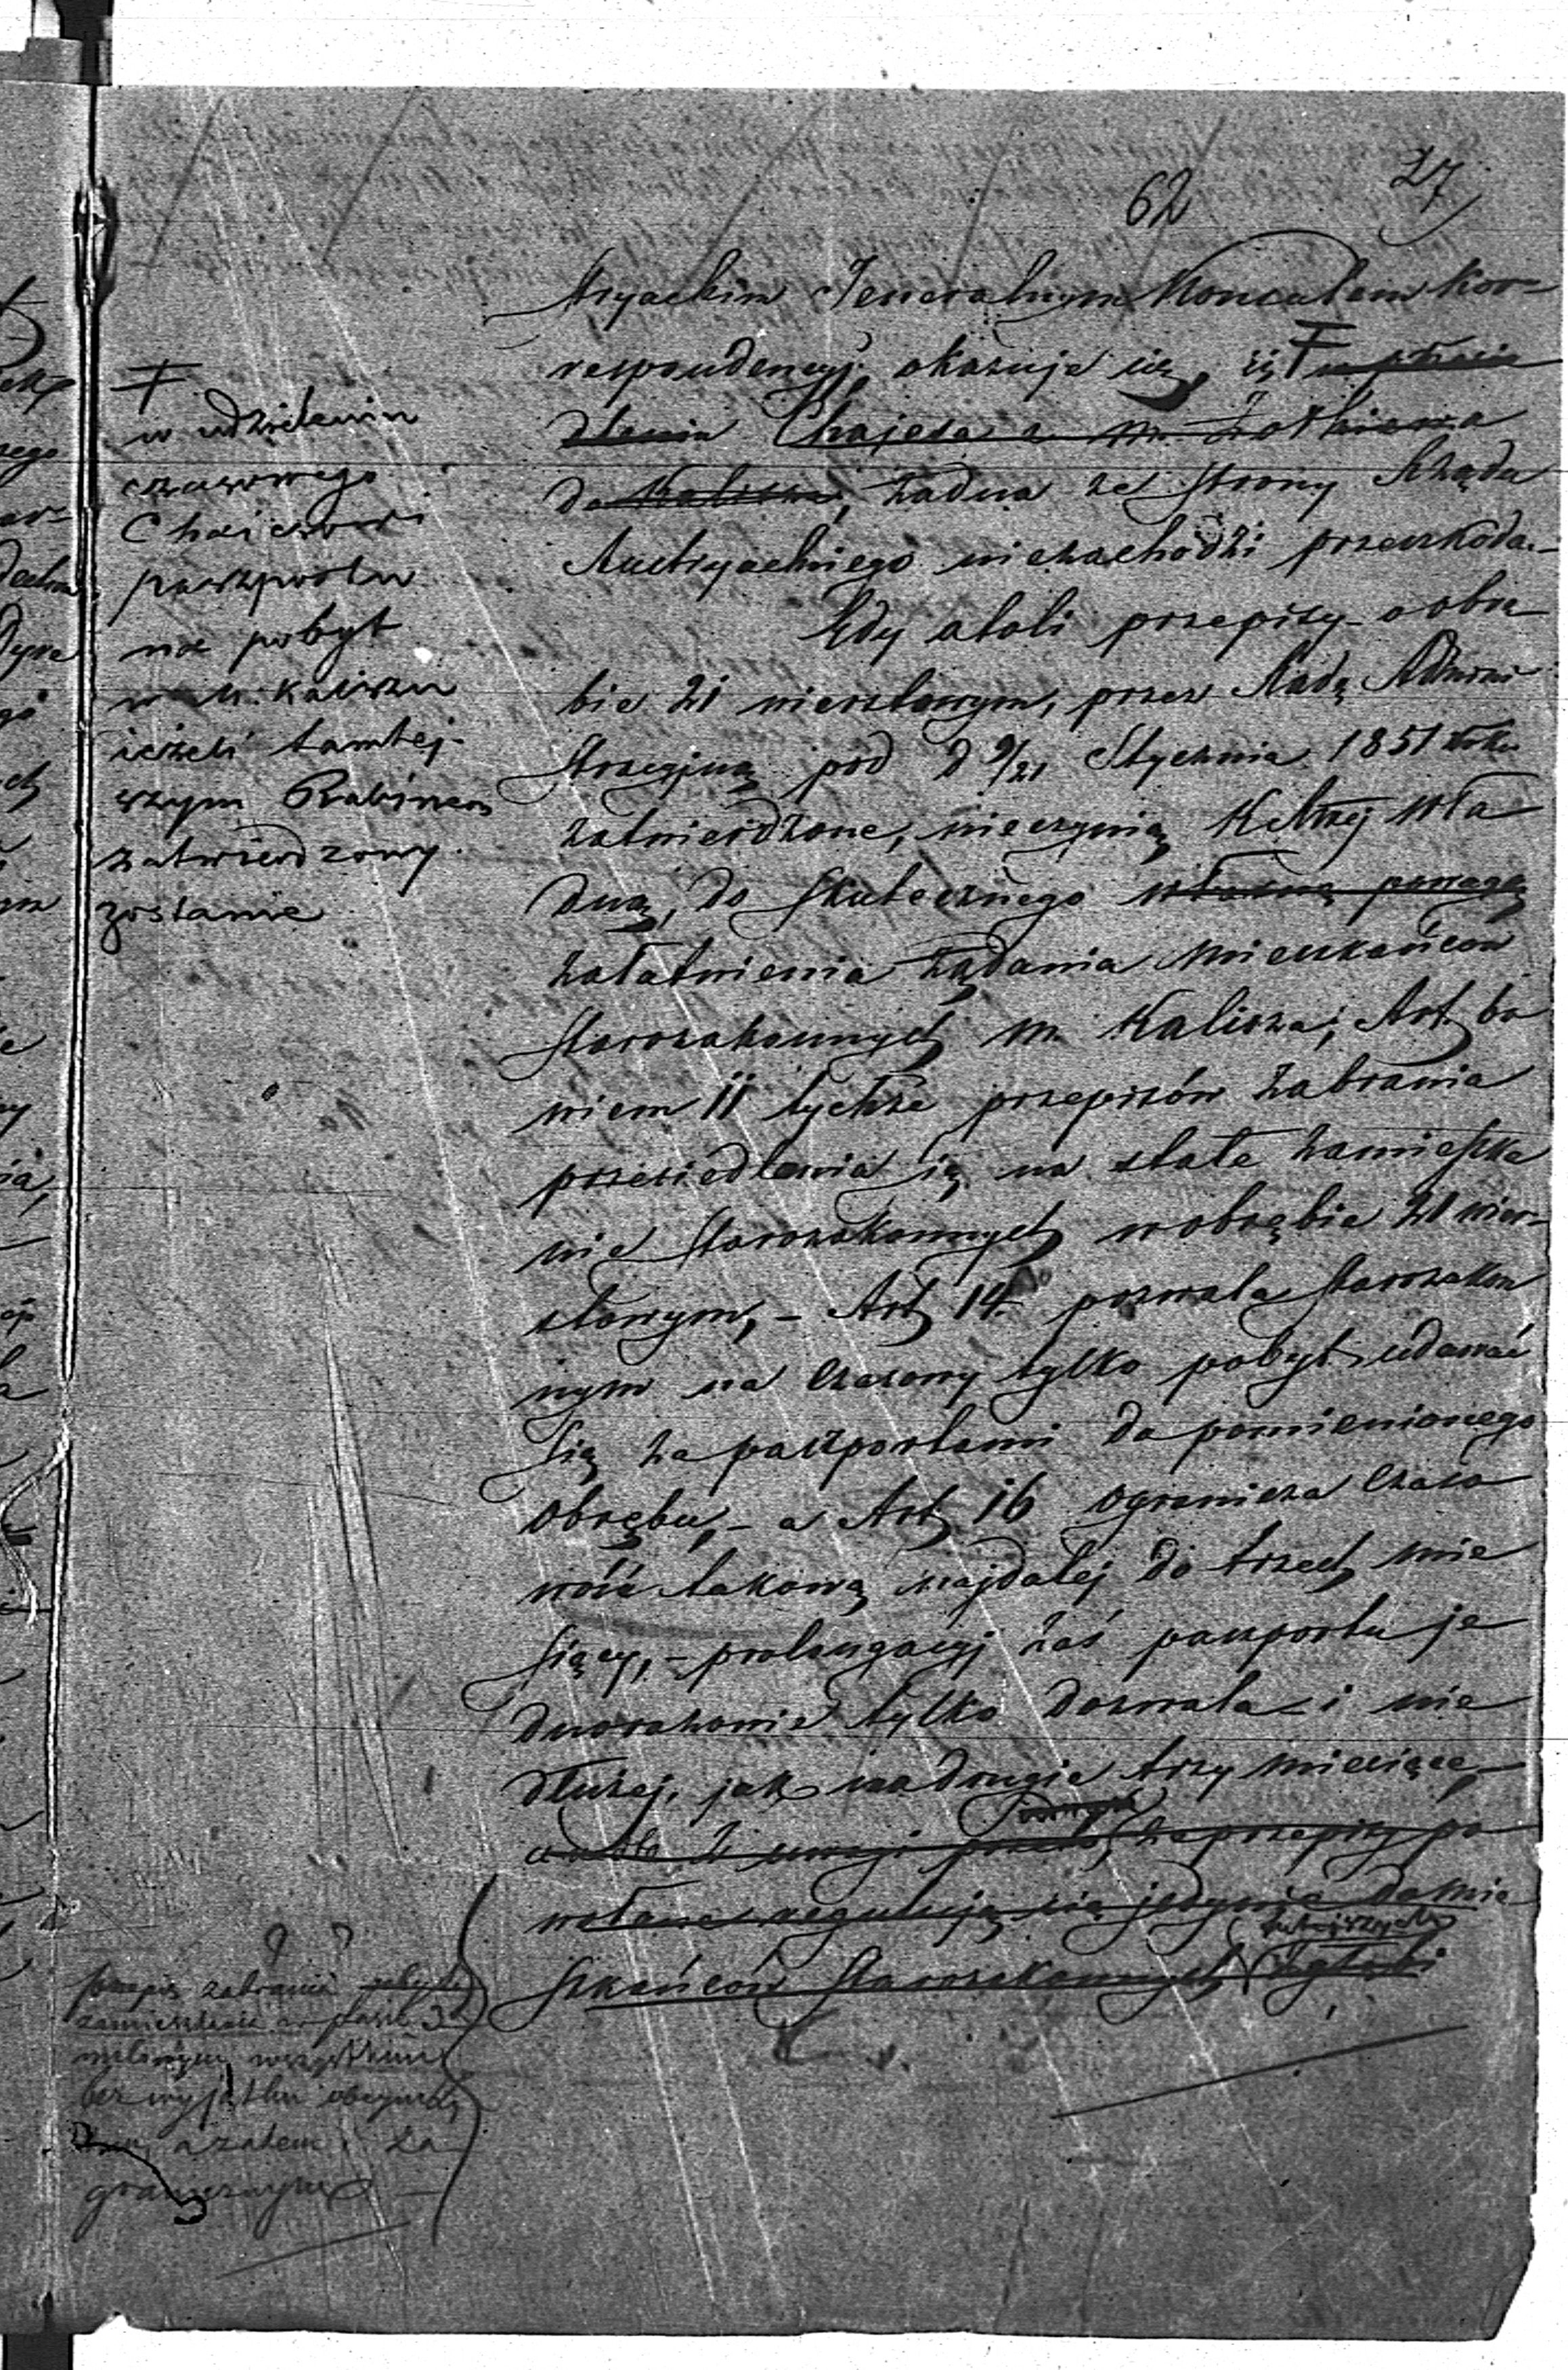 62
27
stryackim Jeneralnym Konsulem Kor-
respondencyj, okazuje się, iż ╪ w przesie
dlenia Chajesa z m. Żołkiewa
do Kalisza, żadna ze strony Rządu
Austryackiego niezachodzi przeszkoda.-
Gdy atoli przepisy o obrę
bie 21 wierstowym, przez Radę Admini
stracyjną pod d 9/21 Stycznia 1851 roku
zatwierdzone, nieczynią tutejszej Wła
dzą, do skutecznego własną powagą
załatwienia żądania mieszkańców
starozakonnych m. Kalisza; Art. bo
wiem 11 tychże przepisów zabrania
przesiedlenia się na stałe zamieszka
nie starozakonnych w obrębie 21 wier-
stowym, - Art 14. pozwala starozakon
nym na czasowy tylko pobyt udawać
się za paszportami do pomienionego
obrębu, - a Art 16 ogranicza czaso
wość takową najdalej do trzech mie
sięcy, - prolongacyj zaś paszportu je
dnorazowie tylko dozwala i nie
dłużej, jak na drugie trzy miesiące,
a to z uwagi, że przepisy po
wołane regulują się jedynie do mie
szkańców starozakonnych tutejszych
╪
w udzieleniu
czasowego
Chaiesowi
paszportu
na pobyt
w m. Kaliszu
ieżeli tamtej-
szym Rabinem
zatwierdzony
zostanie
? ?
przepis zabrania
zamieszkanie w pasie 3
milowym wszystkim
bez wyjątku obcym
a zatem i za
granicznym